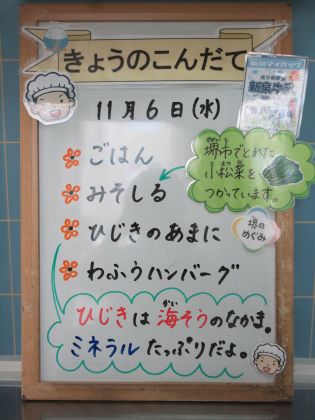 きょうのこんだて
11月6日(水)
ごはん
みそしる
ひじきのあまに
わふうハンバーグ
堺市でとれた
小松菜を
つかっています。
堺の
めぐみ
かい
ひじきは海そうのなかま。
ミネラルたっぷりだよ。